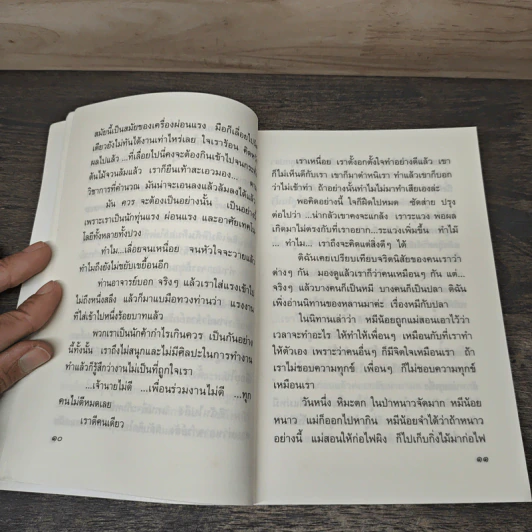 สมัยนี้เป็นสมัยของเครื่องผ่อนแรง มือก็เลื่อยไป
เดียวยังไม่ทันได้งานเท่าไหร่เลย ใจเราร้อน คิดหวัง
ผลไปแล้ว ...ที่เลื่อยไปนี่คงจะต้องกินเข้าไปจนกระทั่ง
ต้นไม้จวนล้มแล้ว เราก็ยืนเท้าสะเอวมอง...
วิชาการที่คำนวณ มันน่าจะเอนลงแล้วล้มลงได้แล้ว
มัน ควร จะต้องเป็นอย่างนั้น เป็นอย่างนี้
เพราะเราเป็นนักทุ่นแรง ผ่อนแรง และอาศัยเทคโน
โลยีทั้งหลายทั้งปวง
ทำไม...เลื่อยจนเหนื่อย จนหัวใจจะวายแล้ว
ทำไมถึงยังไม่ขยับเขยื้อนอีก
ท่านอาจารย์บอก จริงๆ แล้วเราใส่แรงเข้าไป
ไม่ถึงหนึ่งสลึง แล้วก็มาแบมือทวงท่านว่า แรงงาน
ที่ใส่เข้าไปหนึ่งร้อยบาทแล้ว
พวกเราเป็นนักค้ากำไรเกินควร เป็นกันอย่าง
นี้ทั้งนั้น เราถึงไม่สนุกและไม่มีศิลปะในการทำงาน
ทำแล้วก็รู้สึกว่างานไม่เป็นที่ถูกใจเรา
...เจ้านายไม่ดี ...เพื่อนร่วมงานไม่ดี ...ทุก
คนไม่ดีหมดเลย
เราดีคนเดียว
๑๐
เราเหนื่อย เราตั้งอกตั้งใจทำอย่างดีแล้ว เขา
ก็ไม่เห็นดีกับเรา เขาก็มาตำหนิเรา ทำแล้วเขาก็บอก
ว่าไม่เข้าท่า ถ้าอย่างนั้นทำไมไม่มาทำเสียเองล่ะ
พอคิดอย่างนี้ ใจก็ผิดไปหมด ซัดส่าย ปรุง
ต่อไปว่า ...น่ากลัวเขาคงจะแกล้ง เราระแวง พอผล
เกิดมาไม่ตรงกับที่เราอยาก ...ระแวงเพิ่มขึ้น ทำไม้
... ทำไม... เราถึงจะคิดแต่สิ่งดีๆ ได้
ดิฉันเคยเปรียบเทียบจริตนิสัยของคนเราว่า
ต่างๆ กัน มองดูแล้วเราก็ว่าคนเหมือนๆ กัน แต่...
จริงๆ แล้วบางคนก็เป็นหมี บางคนก็เป็นปลา ดิฉัน
เพิ่งอ่านนิทานของหลานมาค่ะ เรื่องหมีกับปลา
ในนิทานเล่าว่า หมีน้อยถูกแม่สอนเอาไว้ว่า
เวลาจะทำอะไร ให้ทำให้เพื่อนๆ เหมือนกับที่เราทำ
ให้ตัวเอง เพราะว่าคนอื่นๆ ก็มีจิตใจเหมือนเรา ถ้า
เราไม่ชอบความทุกข์ เพื่อนๆ ก็ไม่ชอบความทุกข์
เหมือนเรา
วันหนึ่ง หิมะตก ในป่าหนาวจัดมาก หมีน้อย
หนาว แม่ก็ออกไปหากิน หมีน้อยจำได้ว่าถ้าหนาว
อย่างนี้ แม่สอนให้ก่อไฟผิง ก็ไปเก็บกิ่งไม้มาก่อไฟ
๑๑